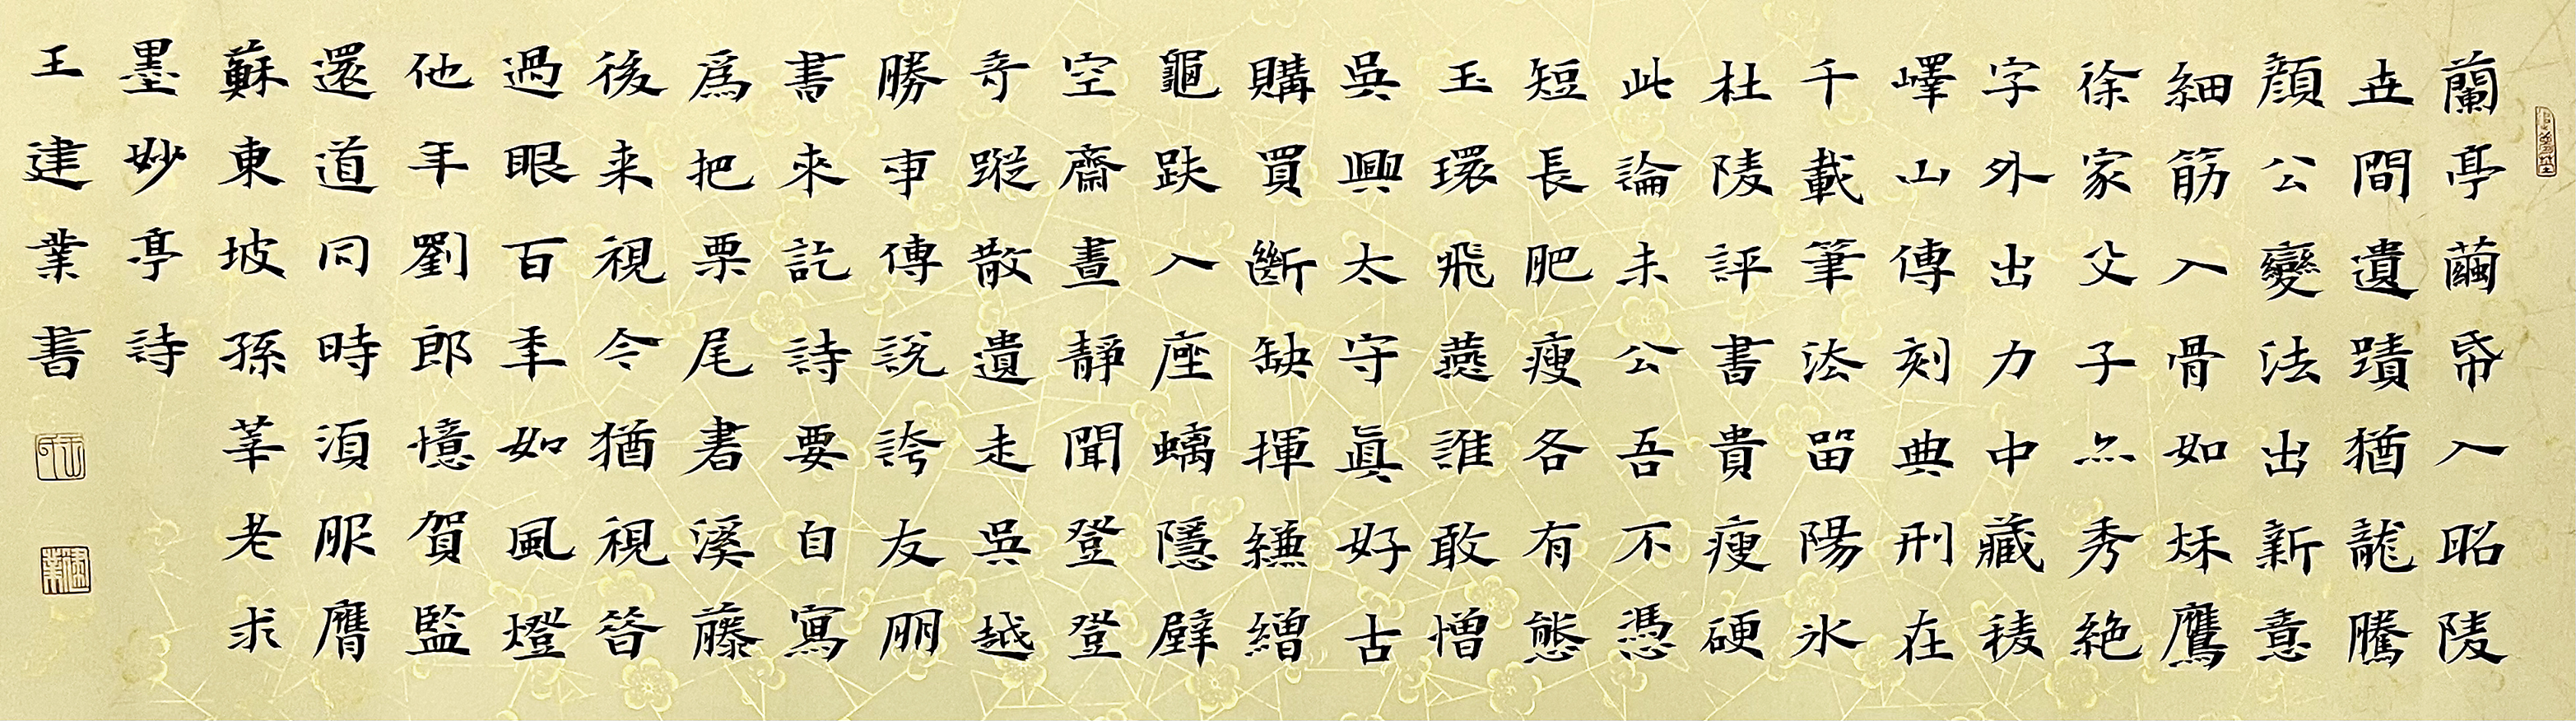 蘭亭繭帋入昭陵
世間遺蹟猶龍騰
顔公變法出新意
細筋入骨如秋鷹
徐家父子亦秀絶
字外出力中藏稜
嶧山傳刻典刑在
千載筆法留陽氷
杜陵評書貴瘦硬
此論未公吾不憑
短長肥瘦各有態
玉環飛燕誰敢憎
吳興太守眞好古
購買斷缺揮縑繒
龜趺入座螭隱壁
空齋晝靜聞登登
奇蹤散遺走吳越
勝事傳說誇友朋
書來訖詩要自寫
爲把栗尾書溪藤
後来視今猶視昔
過眼百年如風燈
他年劉郎憶賀監
還道同時須服膺
蘇東坡孫莘老求
墨妙亭詩
王建業書